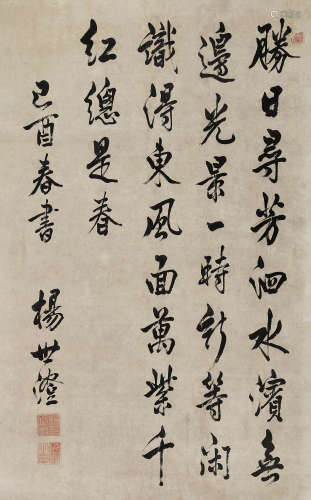 勝日尋芳泗水濱無
邊光景一時新等閑
識得東風面萬紫千
紅總是春
己酉春書
楊世澄